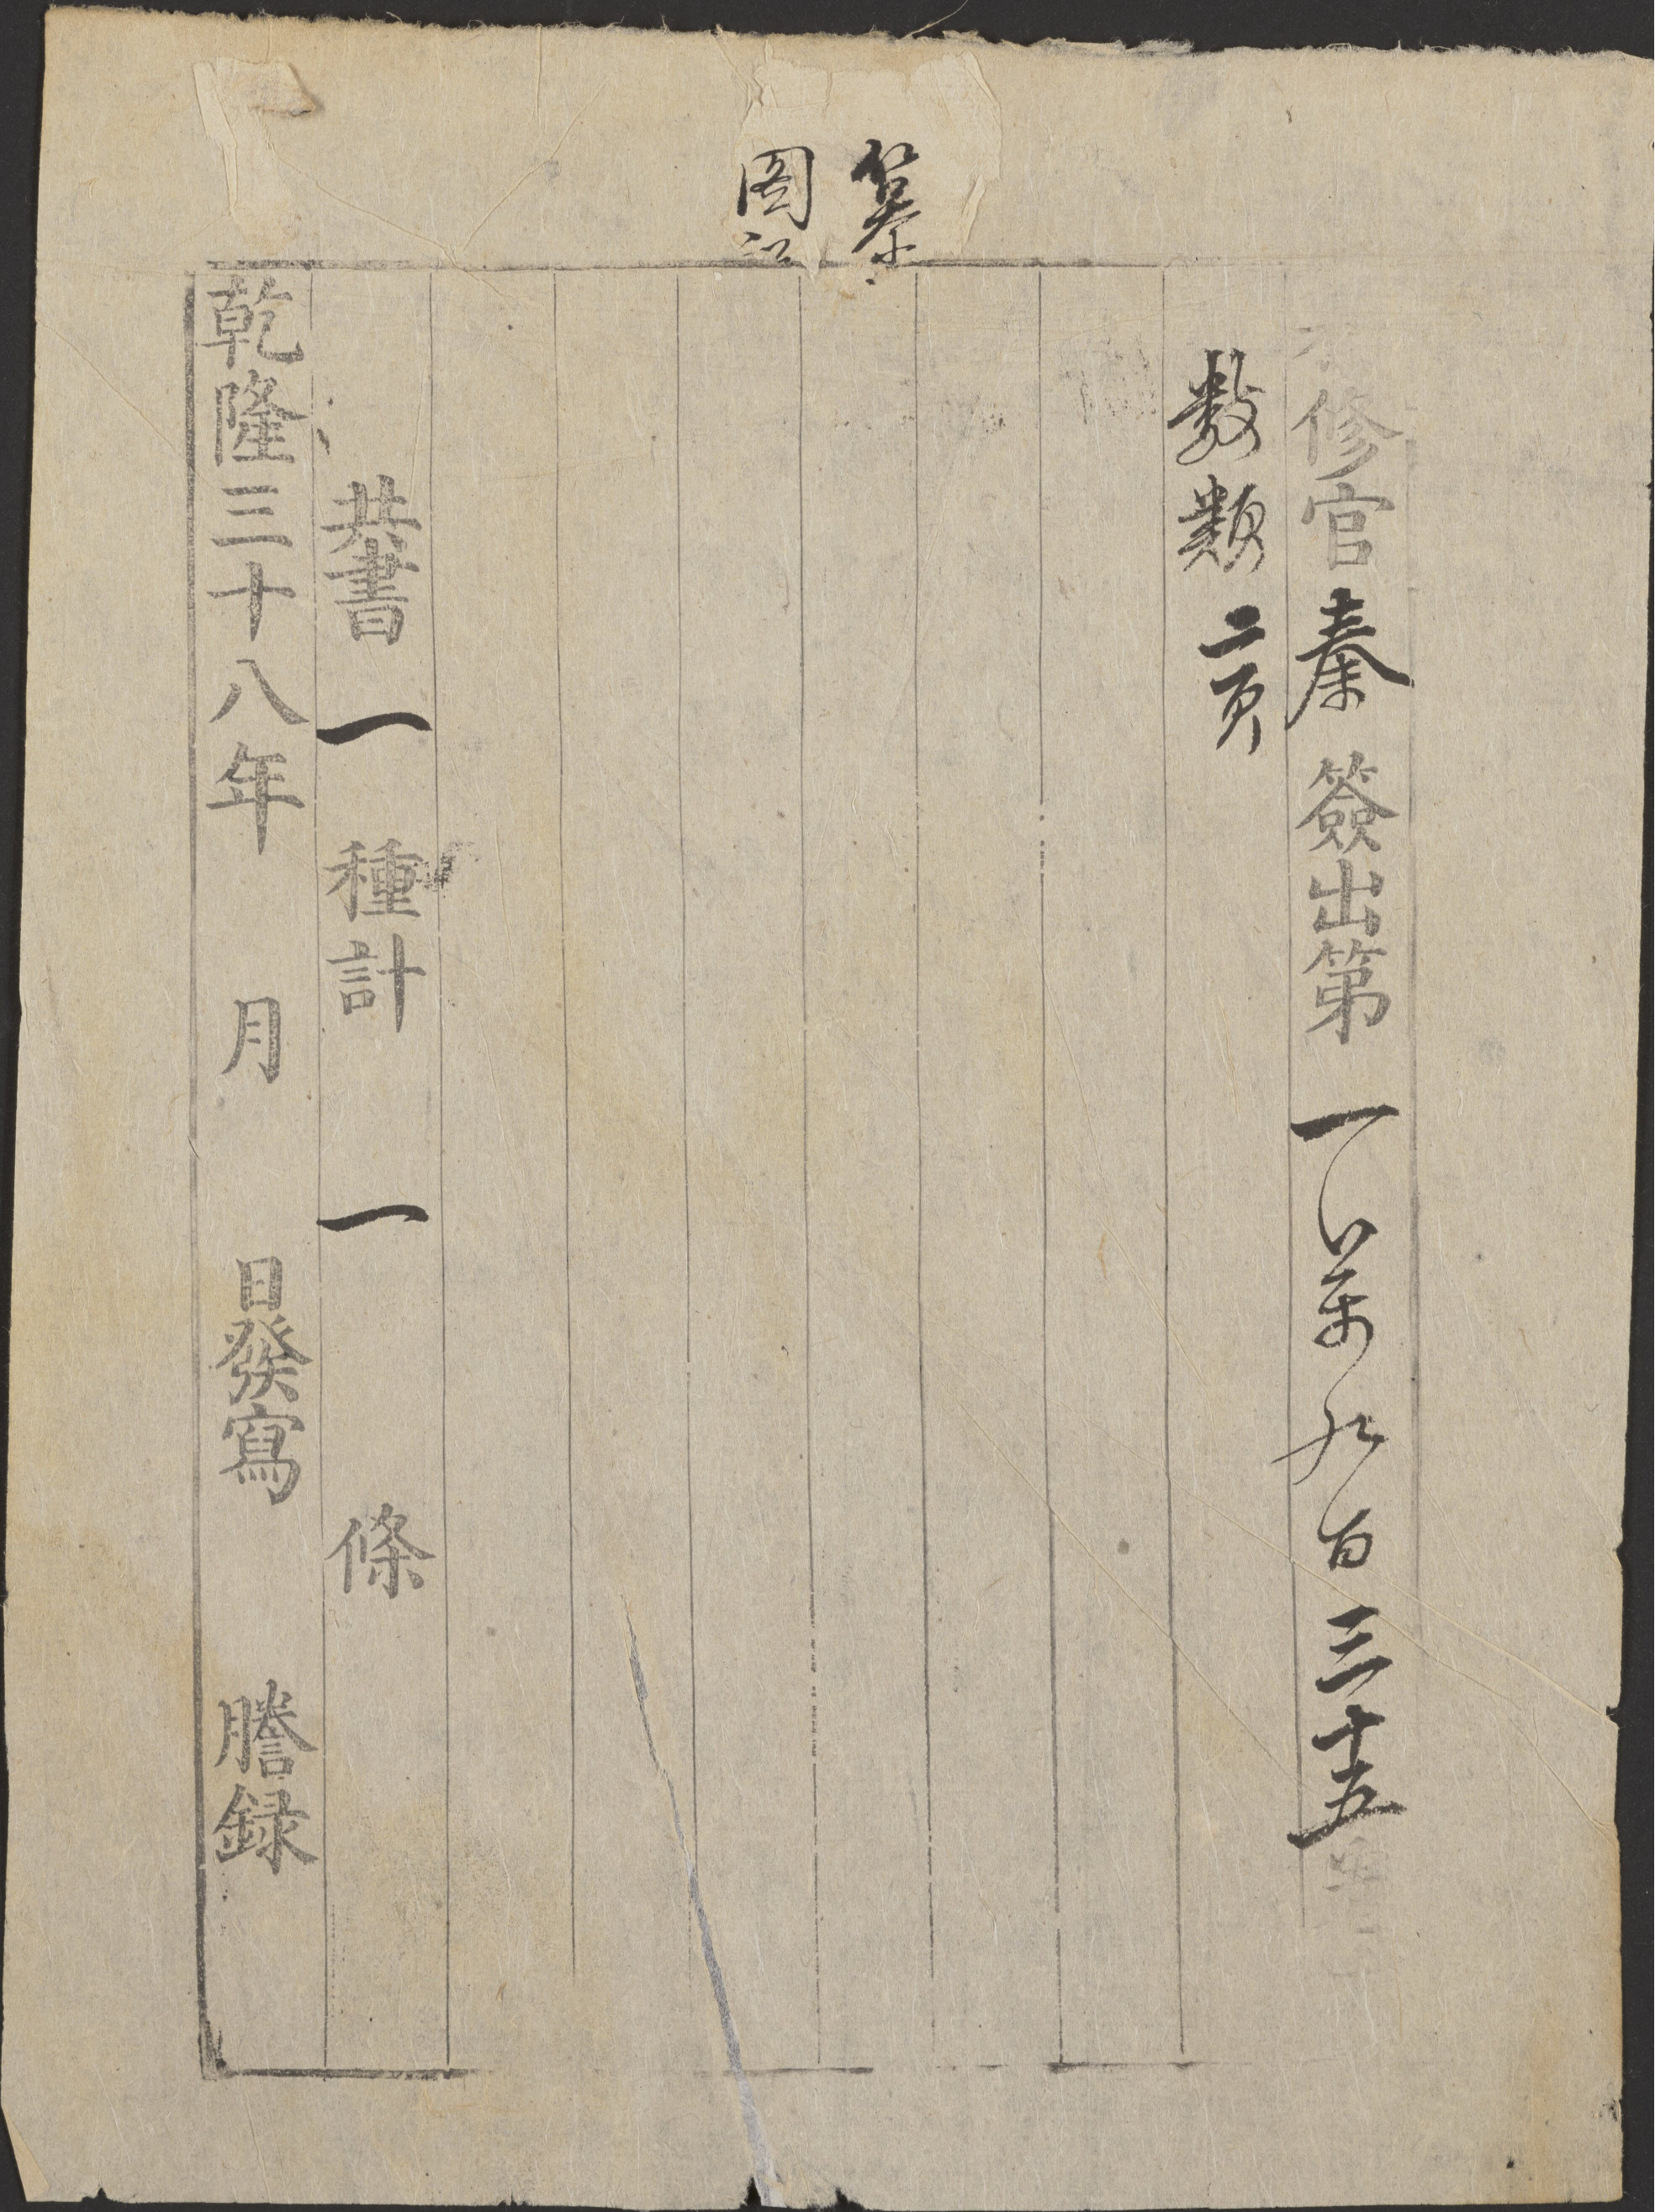 纂
图
修官秦簽出第一萬九百三十五
数類二頁
共書一種計一條
乾隆三十八年月日發寫謄録